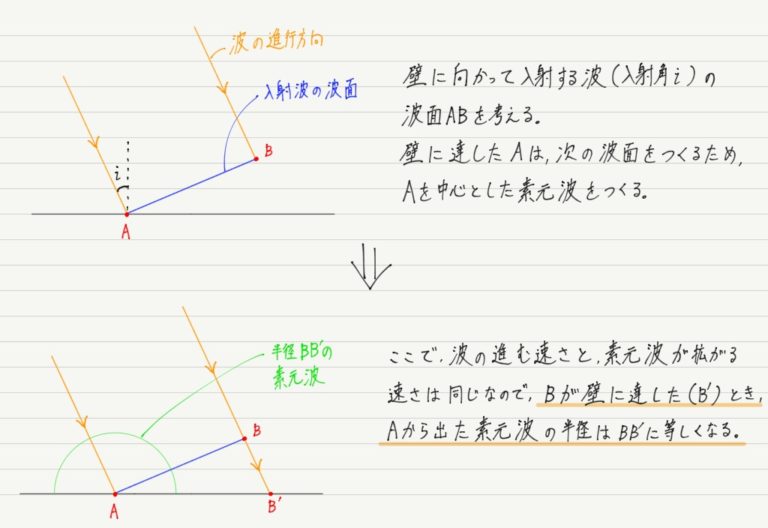 波の進行方向
入射波の波面
B
i
A
壁に向かって入射する波(入射角i)の
波面ABを考える。
壁に達したAは,次の波面をつくるため,
Aを中心とした素元波をつくる。
半径BB'の
素元波
B
A
B'
ここで,波の進む速さと,素元波が拡がる
速さは同じなので,Bが壁に達した(B')とき,
Aから出た素元波の半径はBB'に等しくなる。